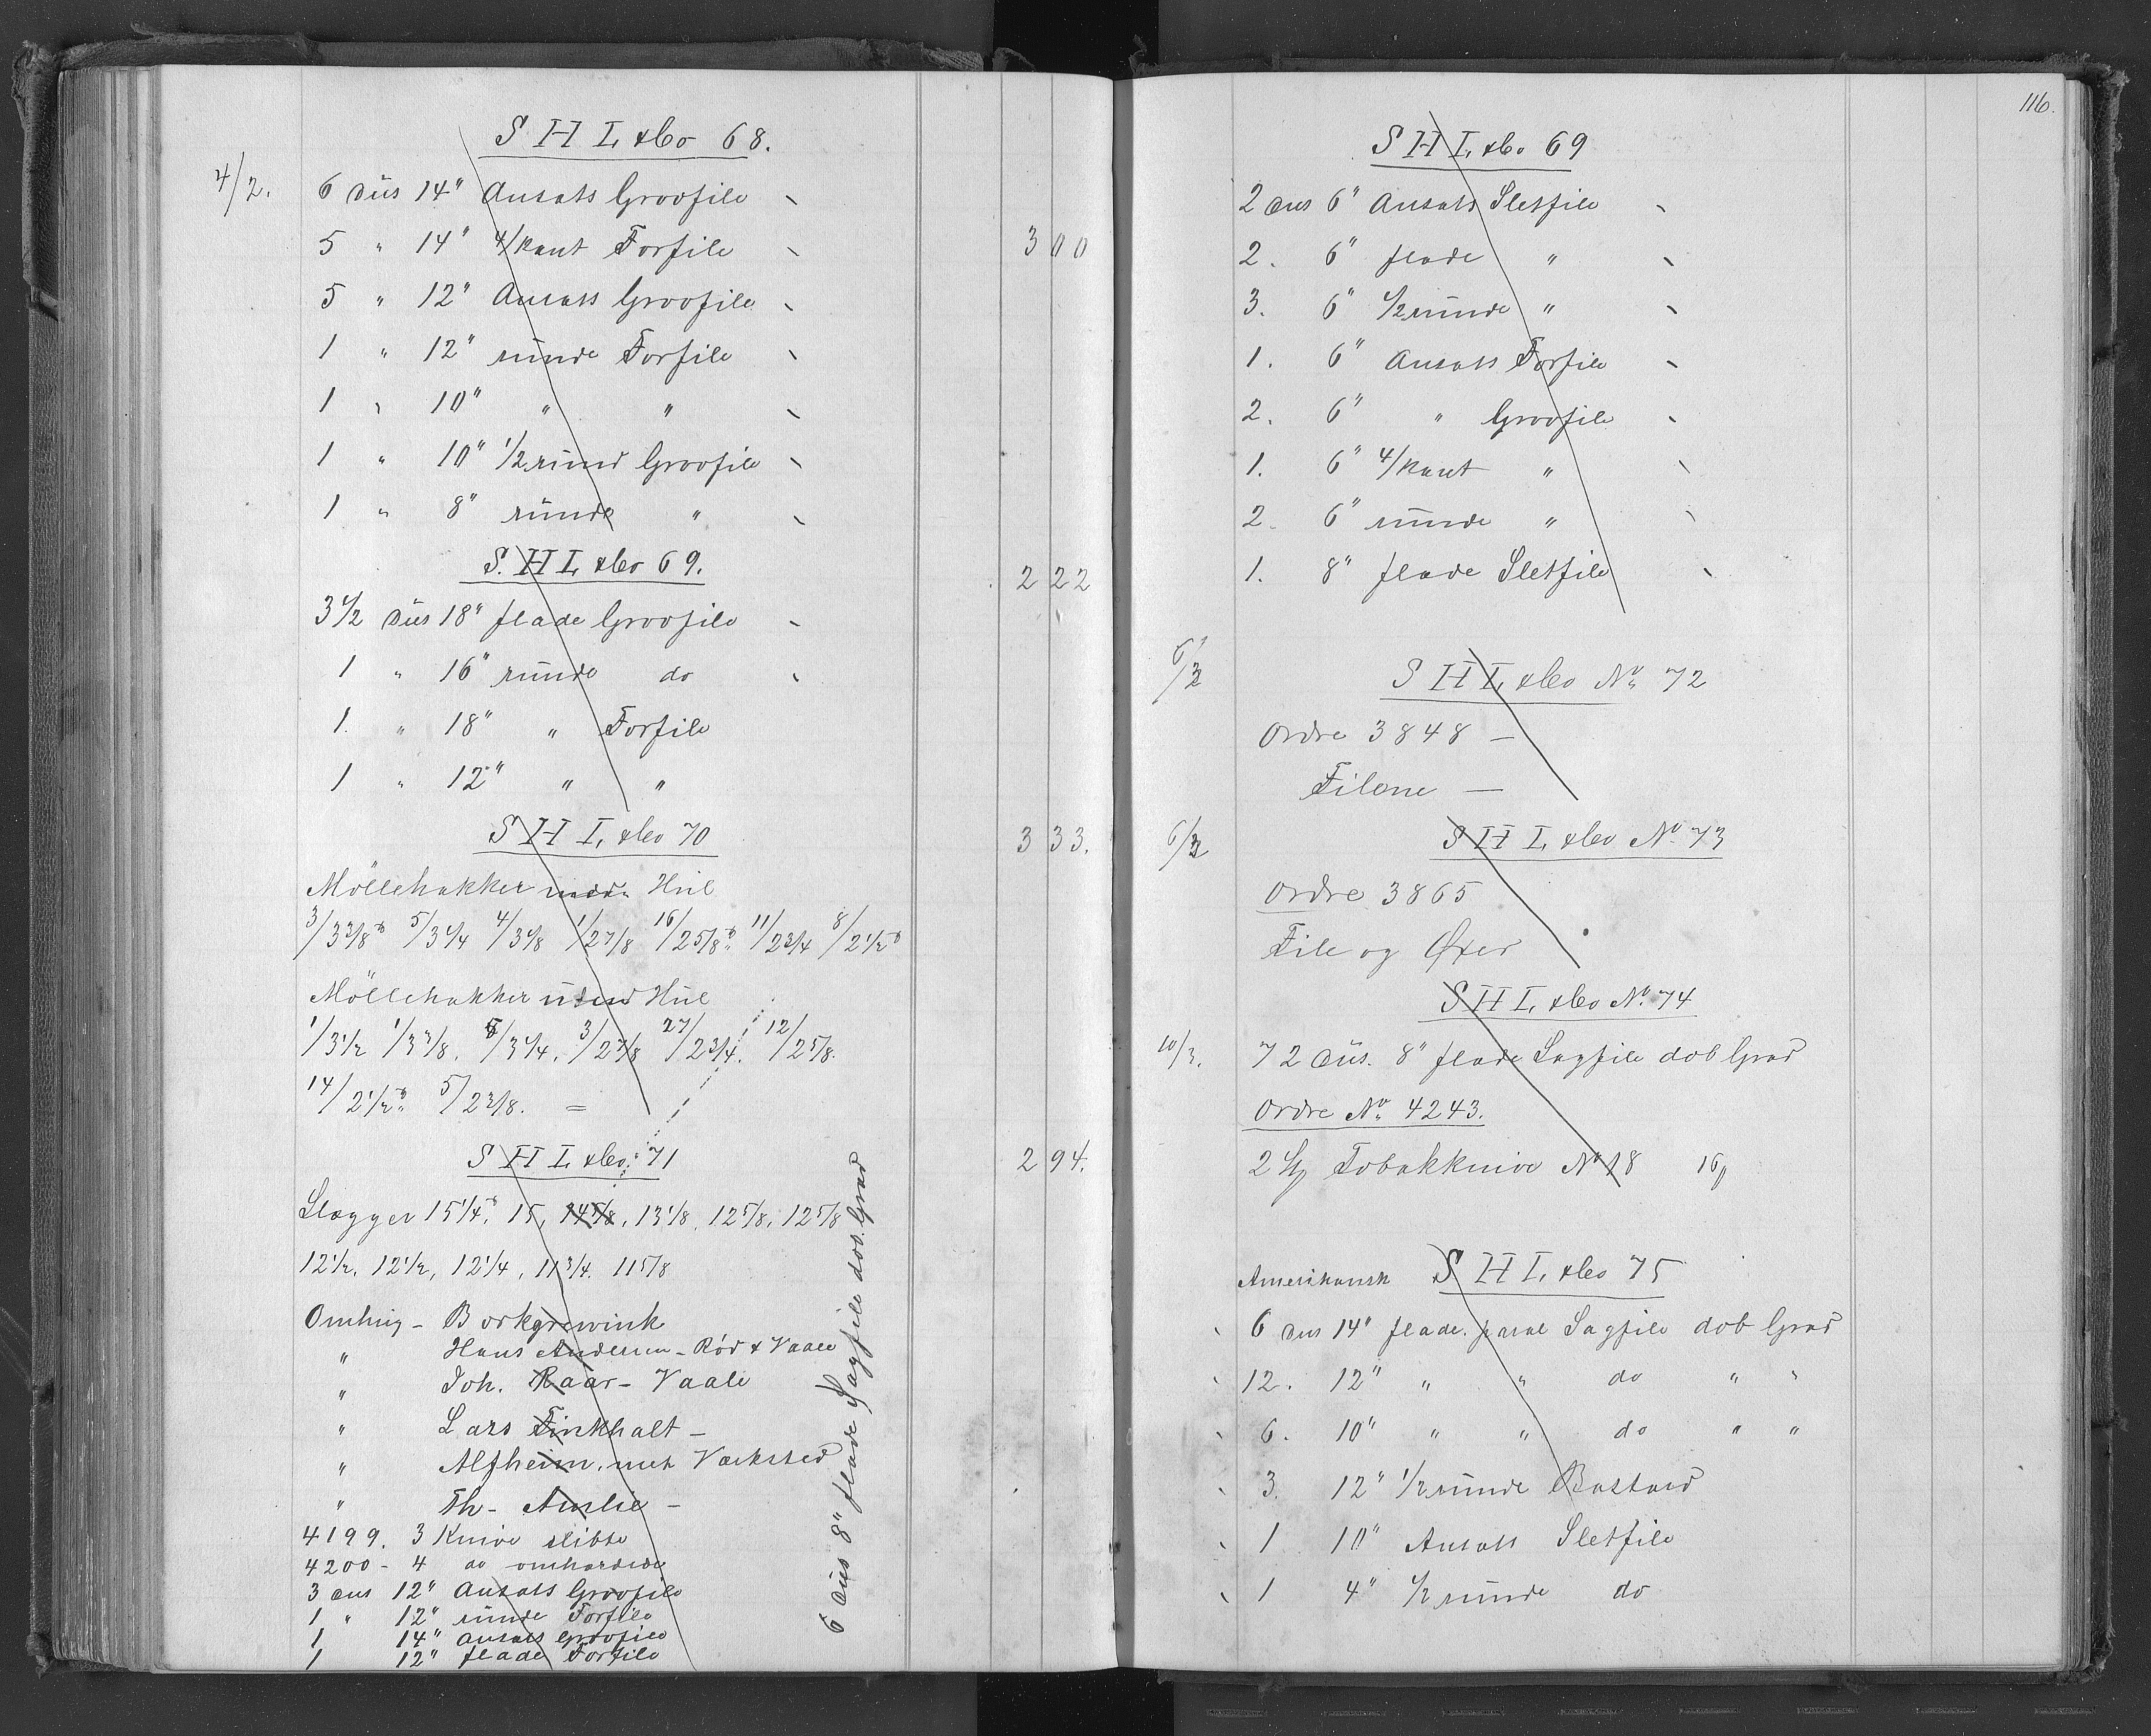 S H L & Co 68.
4/2. 6 düs 14" Ansats Grovfile
5 " 14" 4/kant Forfile 300
5 " 12" Ansats Grovfile
1 " 12" runde Forfile
1 " 10" " "
1 " 10" 1/2 rund Grovfile
1 " 8" runde "
S. H L & Co 69. 222
3 1/2 düs 18" flade Grovfile
1 " 16" runde do
1. " 18" " Forfile
1 " 12" " "
S H L & Co 70 333.
Möllehakker med Hül
3/3 3/8 5/3 1/4 4/3 1/8 1/2 7/8 16/2 5/8 11/2 3/4 8/2 1/2
Möllehakker uden Hül
1/3 1/2 1/3 3/8. 5/3 1/4. 3/2 7/8 27/2 3/4. 12/2 5/8.
14/2 1/2 5/2 3/8. =
S H L & Co. 71 294.
Slægger 15 1/4, 15, 14 7/8, 13 1/8, 12 7/8, 12 5/8
12 1/2, 12 1/2, 12 1/4, 11 3/4. 11 5/8
Omhug - Borkgrewink
" Hans Andersen - Rød & Vaale
" Joh. Raar - Vaale
" Lars Finkhalt -
" Alfheim. mek Værksted
" Th - Amlie -
4199. 3 Knive slibte
4200 - 4 do omhærdede
3 dus 12" Ansats Grovfile
1 " 12" runde Forfile
1 14" Ansats Grovfile
1 12" flade Forfile
6 düs 8" flade Sagfile dob. Grad
116.
S H L & Co 69
2 dus 6" Ansats Sletfile
2. 6" flade "
3. 6" 1/2 runde "
1. 6" Ansats Forfile
2. 6" " Grovfile
1. 6" 4/kant "
2. 6" runde "
1. 8" flade Sletfile
6/3 S H L & Co No 72
Ordre 3848 -
Filene -
6/3 S H L & Co No 73
Ordre 3865
File og Øxer
S H L & Co No 74
10/3. 72 düs. 8" flade Sagfile dob Grad
Ordre No 4243.
2 Tobakknive No 18 16
Amerikansk S H L & Co 75
6 dus 14" flade. paral Sagfile dob Grad
12. 12" " " do " "
6. 10" " " do " "
3. 12" 1/2 runde Bastard
1 10" Ansats Sletfile
1 4" 1/2 runde do